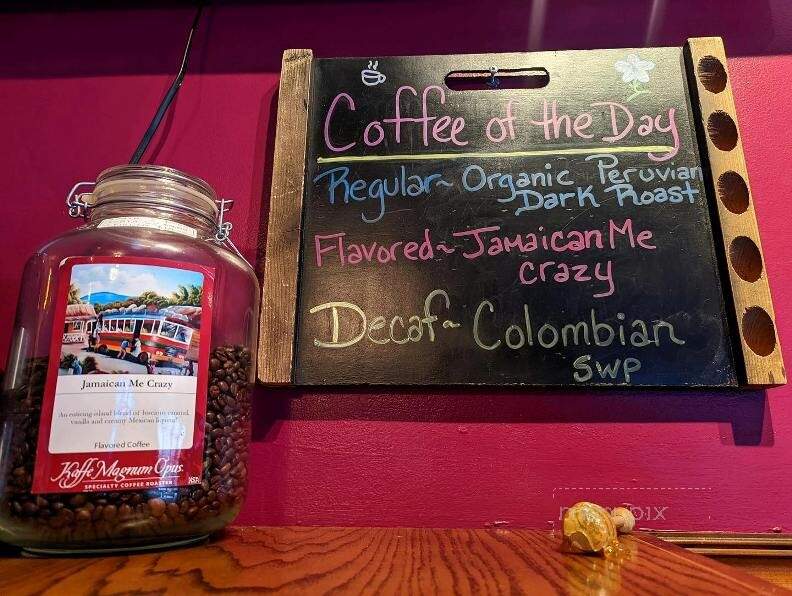 Coffee of the Day
Regular~ Organic Peruvian
Dark Roast
Flavored~ Jamaican Me
crazy
Decaf~ Colombian
SWP
Jamaican Me Crazy
An enticing island blend of Tuscany caramel,
vanilla and creamy Mexican liqueur!
Flavored Coffee
Kaffé Magnum Opus
SPECIALTY COFFEE ROASTER